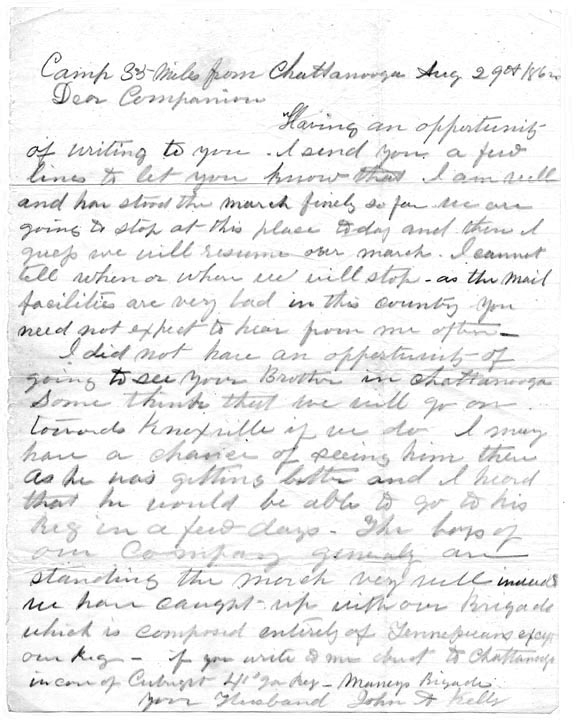 Camp 35 Miles from Chattanooga Aug 29th 186
Dear Companion
Having an opportunity
of writing to you I send you a few
lines to let you know that I am well
and hav stood the march finely so far we are
going to stop at this place today and then I
guess we will resume our march. I cannot
tell when or where we will stop - as the mail
facilities are very bad in this country you
need not expect to hear from me often -
I did not have an opportunity of
going to see your Brother in Chattanooga
Some thinks that we will go on
towards Knoxville if we do I may
have a chance of seeing him then
as he was getting better and I heard
that he would be able to go to his
Reg in a few days - The boys of
our Company genealy are
standing the march very well indeed
we have caught up with our Brigade
which is composed entirely of Tennesseans except
our Reg - if you write to me direct to Chattanooga
in care of 41st Ga Reg - Maneys Brigade
your Husband John A Kelly